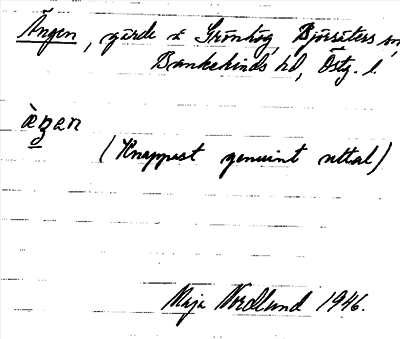 Ängen, gärde i Grönhög, Björsäters sn,
Bankekinds hd, Östg. l.
(Knappast genuint uttal)
Maja Nordlund 1946.